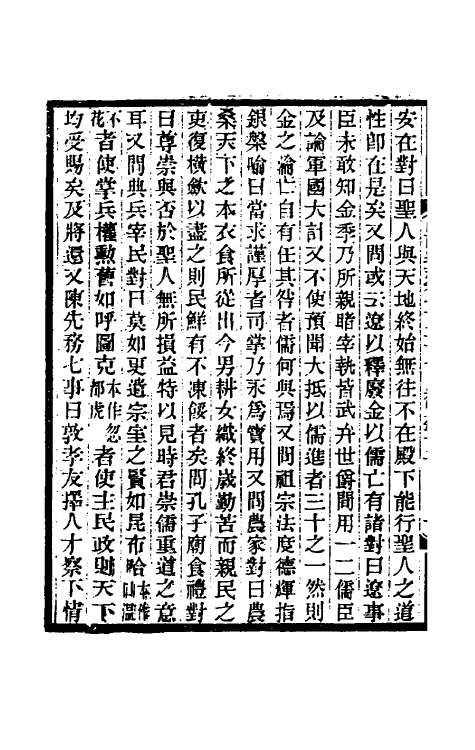 安在對曰聖人與天地終始無往不在殿下能行聖人之道
性卽在是矣又問或云遼以釋廢金以儒亡有諸對曰遼事
臣未敢知金季乃所親睹宰執皆武弁世爵間用一二儒臣
及論軍國大計又不使預聞大抵以儒進者三十之一然則
金之淪亡自有任其咎者儒何與焉又問祖宗法度德輝指
銀槃喻曰當求謹厚者司掌乃永爲寶用又問農家對曰農
桑天下之本衣食所從出今男耕女織終歲勤苦而親民之
吏復橫斂以盡之則民鮮有不凍餒者矣問孔子廟食禮對
曰尊崇與否於聖人無所損益特以見時君崇儒重道之意
耳又問典兵宰民對曰莫如更遣宗室之賢如昆布哈本作口溫
不花者使掌兵權勲舊如呼圖克本作忽都虎者使主民政則天下
均受賜矣及將還又陳先務七事曰敦孝友擇人才察下情